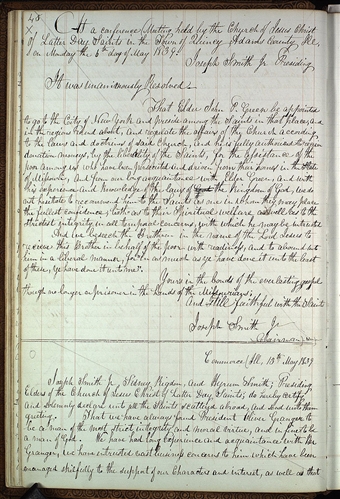 48
At a conference Meeting held by the Church of Jesus Christ
of Latter Day Saints in the Town of Quincy, Adams County, Ill,
on Monday the 6th day of May 1839.
Joseph Smith Jr Presiding.
It was unanimously Resolved:
That Elder John P. Green be appointed
to go to the City of New York and preside among the Saints in that place, and
in the regions round about, and regulate the affairs of the Church according
to the laws and doctrines of said Church, and he is fully authorised to receive
donation moneys, by the liberality of the Saints, for the assistance of the
poor among us who have been persecuted and driven from their homes in the State
of Missouri, and from our long acquaintance with Elder Green, and with
his experience and knowledge of the laws of the Kingdom of God, we do
not hesitate to recommend him to the Saints as one in whom they may place
the fullest confidence, both as to their Spiritual welfare, as well as to the
strictest integrity in all temporal concerns, with which he may be interested
And we beseech the Brethren in the name of the Lord Jesus to
receive this Brother in behalf of the poor with readiness, and to abound unto
him in a liberal manner, for "in as much as ye have done it unto the least
of these, ye have done it unto me".
Yours in the bonds of the everlasting gospel
though no longer a prisoner in the hands of the Missourians;
and still faithful with the Saints
Joseph Smith Jr
Chairman
Commerce, Ill. 13th May 1839
Joseph Smith Jr, Sidney Rigdon, and Hyrum Smith; Presiding
Elders of the Church of Jesus Christ of Latter Day Saints, do hereby certify
and solemnly declare unto all the Saints scattered abroad, and send unto them
greeting. That we have always found President Oliver Granger to
be a man of the most strict integrity and moral virtue, and in fine to be
a man of God. We have had long experience and acquaintance with Br
Granger, we have intrusted vast business concerns to him which have been
managed skilfully to the support of our Characters and interest, as well as that